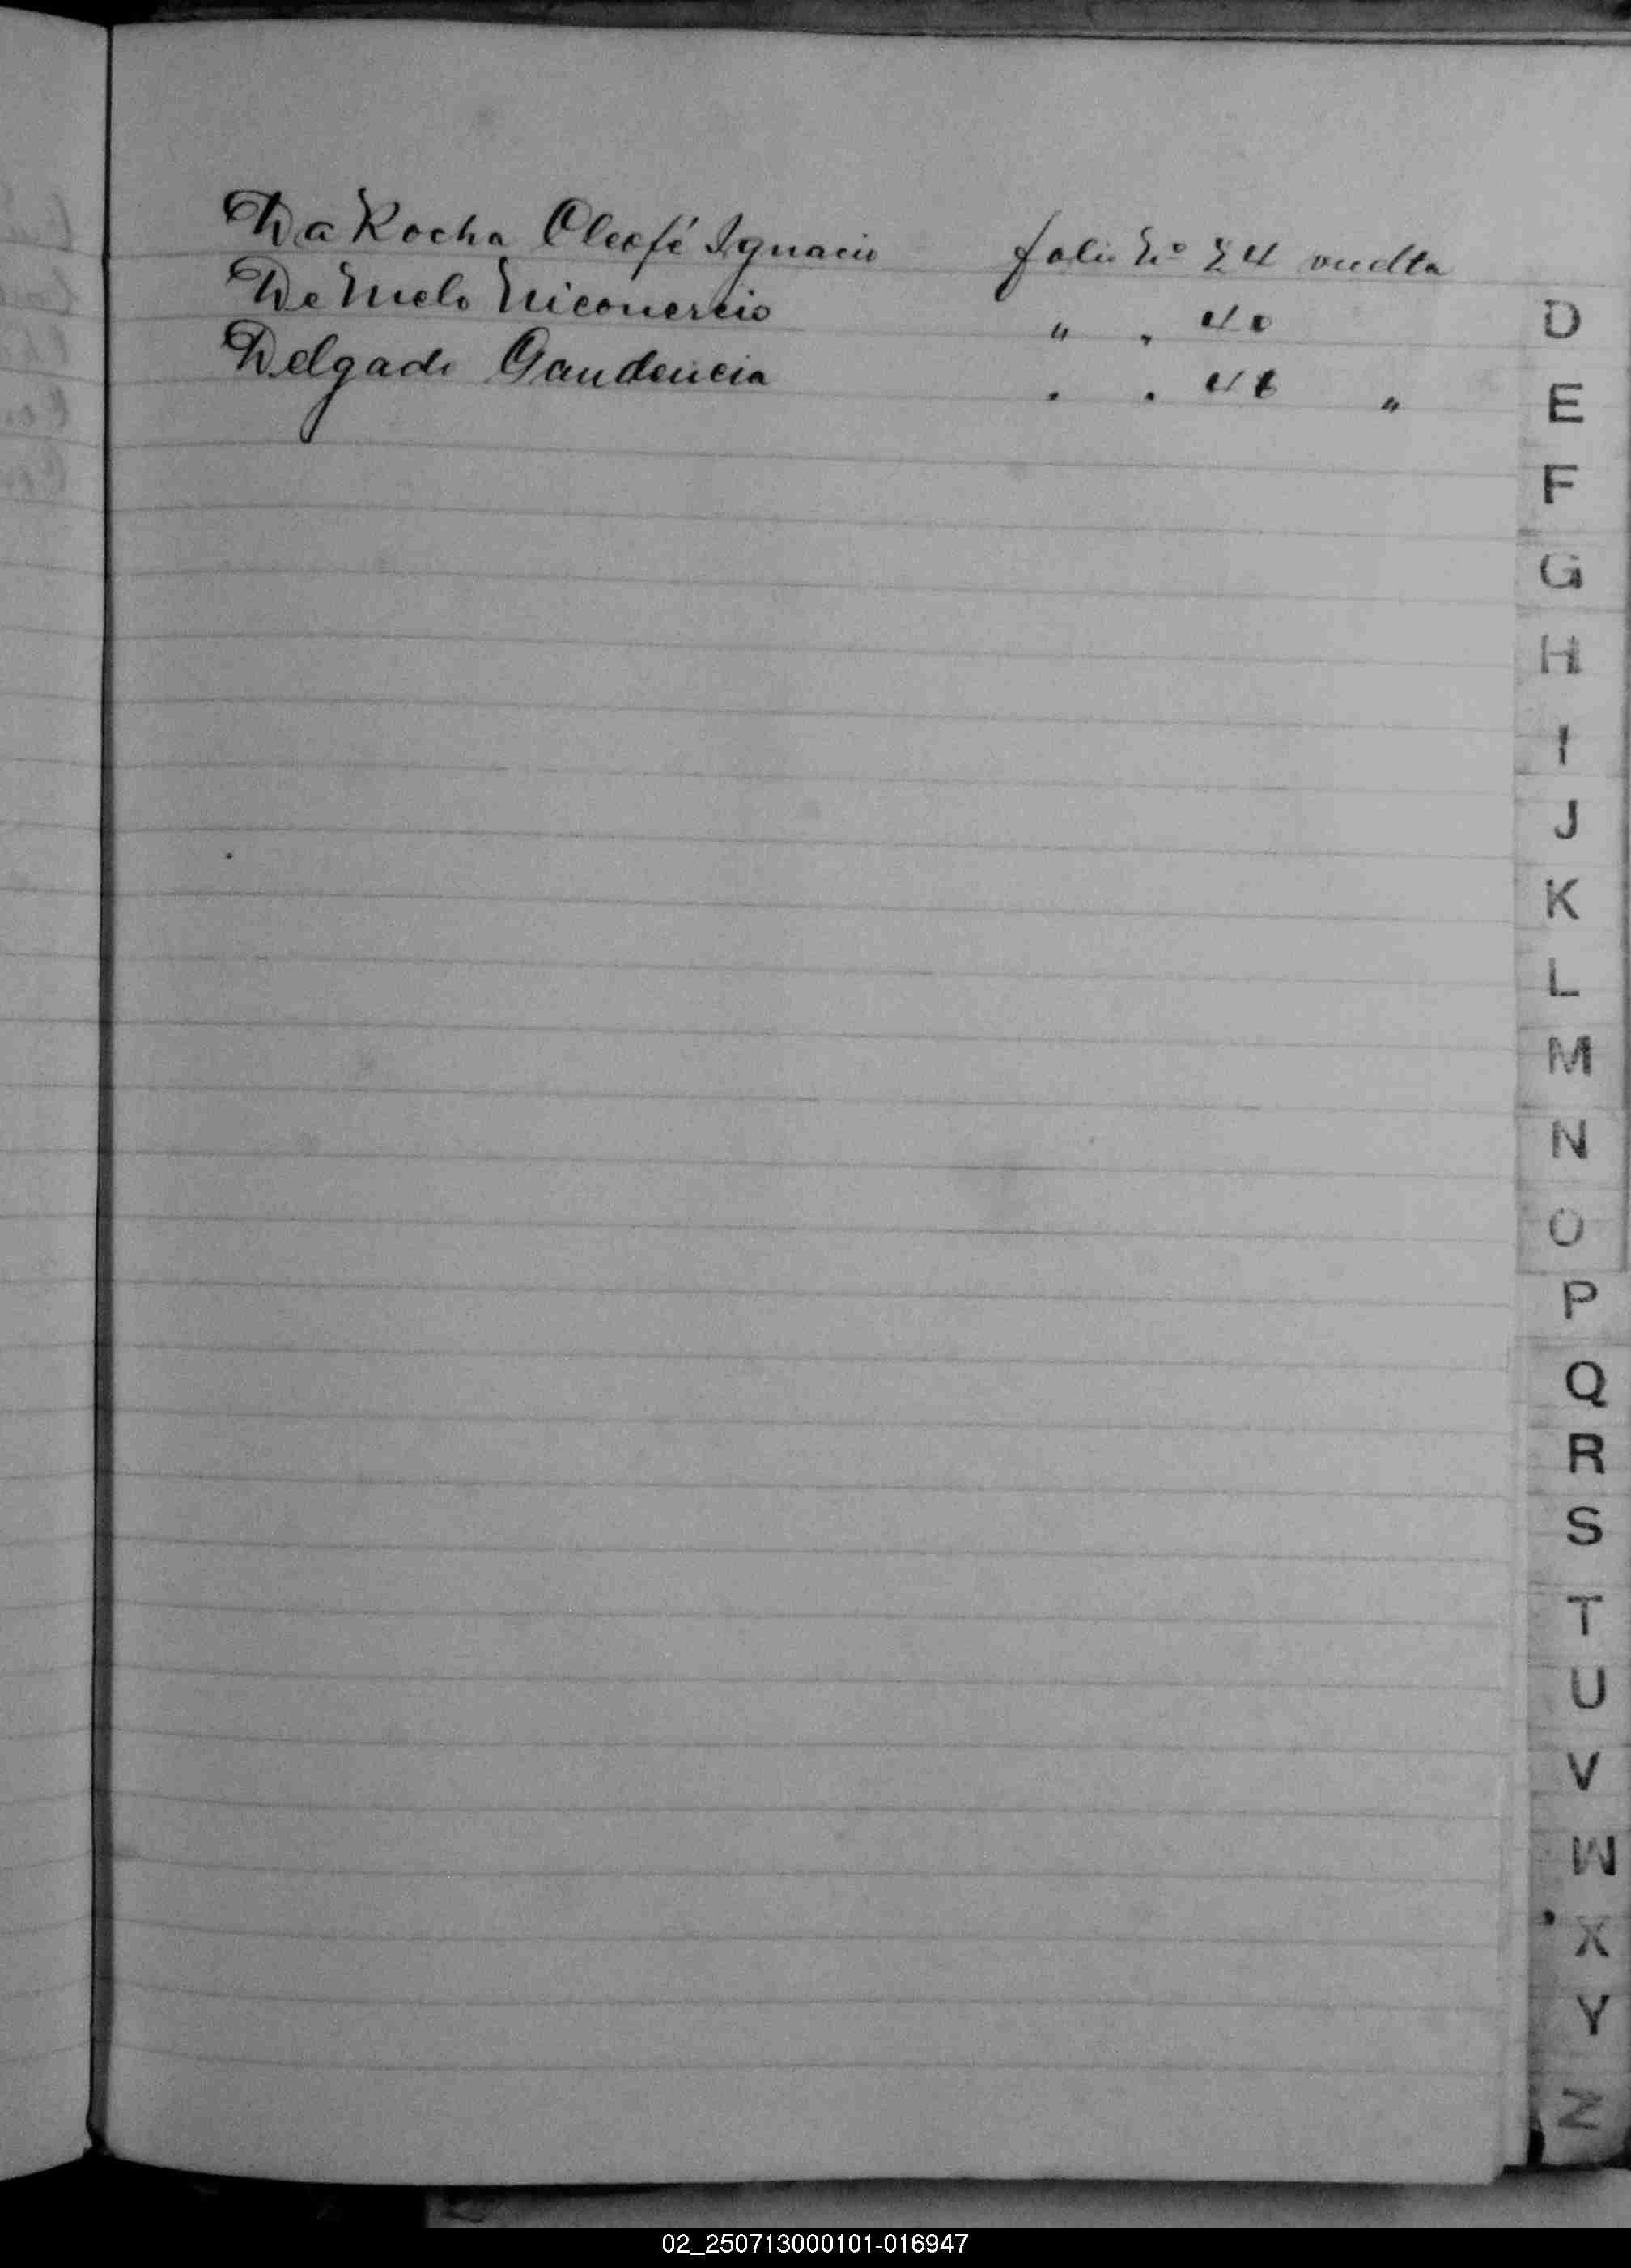 Da Rocha Cleofé Ignacio folio No 24 vuelta
De Melo Niconercio " " 40
Delgado Gaudencia " " 46 "
D
E
F
G
H
I
J
K
L
M
N
O
P
Q
R
S
T
U
V
W
X
Y
Z
02_250713000101-016947